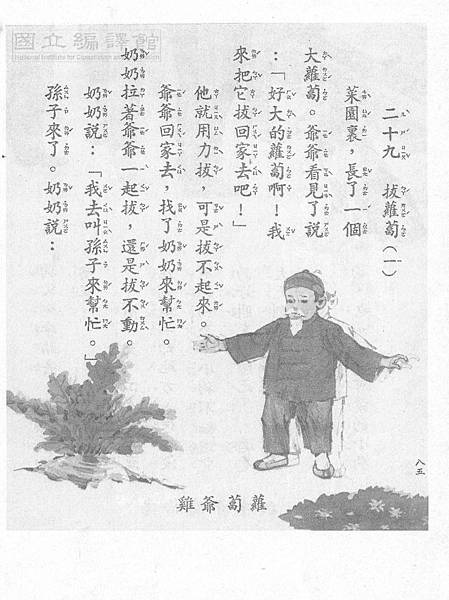 國立編譯館
National Institute for Compilation and Translation
二十九 拔蘿蔔(一)
菜園裏,長了一個
大蘿蔔。爺爺看見了說
:「好大的蘿蔔啊!我
來把它拔回家去吧!」
他就用力拔,可是拔不起來。
爺爺回家去,找了奶奶來幫忙。
奶奶拉著爺爺一起拔,還是拔不動。
奶奶說:「我去叫孫子來幫忙。」
孫子來了。奶奶說:
蘿蔔爺雞
八五